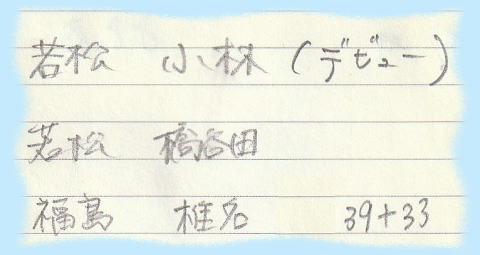 若松 小林 (デビュー)
若松 橋谷田
福島 椎名 39+33